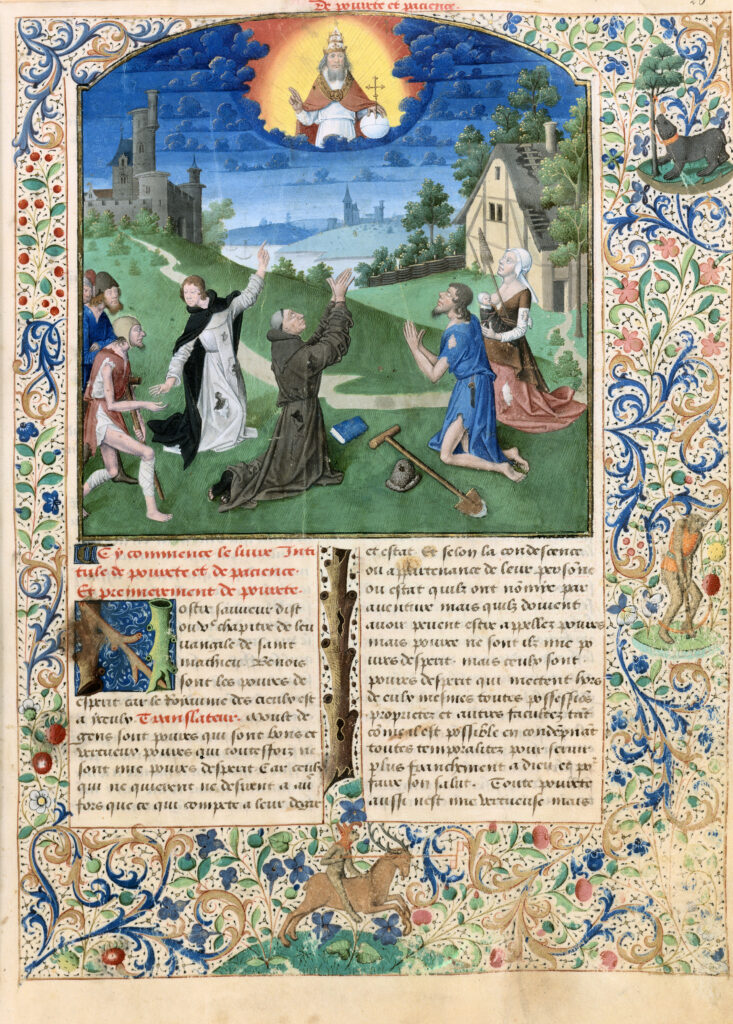 De pourete et pacience.
Cy commence le liure Inti
tule de pourete et de pacience.
Et premierement de pourete.
Nostre sauueur dist
ou Ve chapitre de leu
uangile de saint
mathieu Benois
sont les poures de
esperit car le Royaume des cieulx est
a yceulx Translateur. Moult de
gens sont poures qui sont bons et
vertueux poures qui toutesfoiz ne
sont mie poures desperit Car ceulx
qui ne quierent ne desirent a auoir
fors que ce qui compete a leur degre
et estat Et selon la condescence
ou appartenance de leur personne
ou estat quilz ont norrie par
auenture mais quilz doiuent
auoir peuent estre appellez poures
mais poure ne sont ilz mie po
ures desperit. mais ceulx sont
poures desperit qui mectent hors
de eulx mesmes toutes possessions
proprietez et autres facultez tant
comme il est possible en condepnat
toutes temporalitez pour seruir
plus franchement a dieu et po
faire son salut. Toute pourete
aussi nest mie vertueuse mais